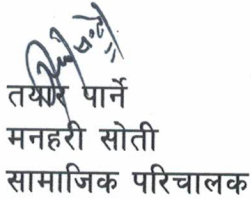 तयार पार्ने
मनहरी सोती
सामाजिक परिचालक